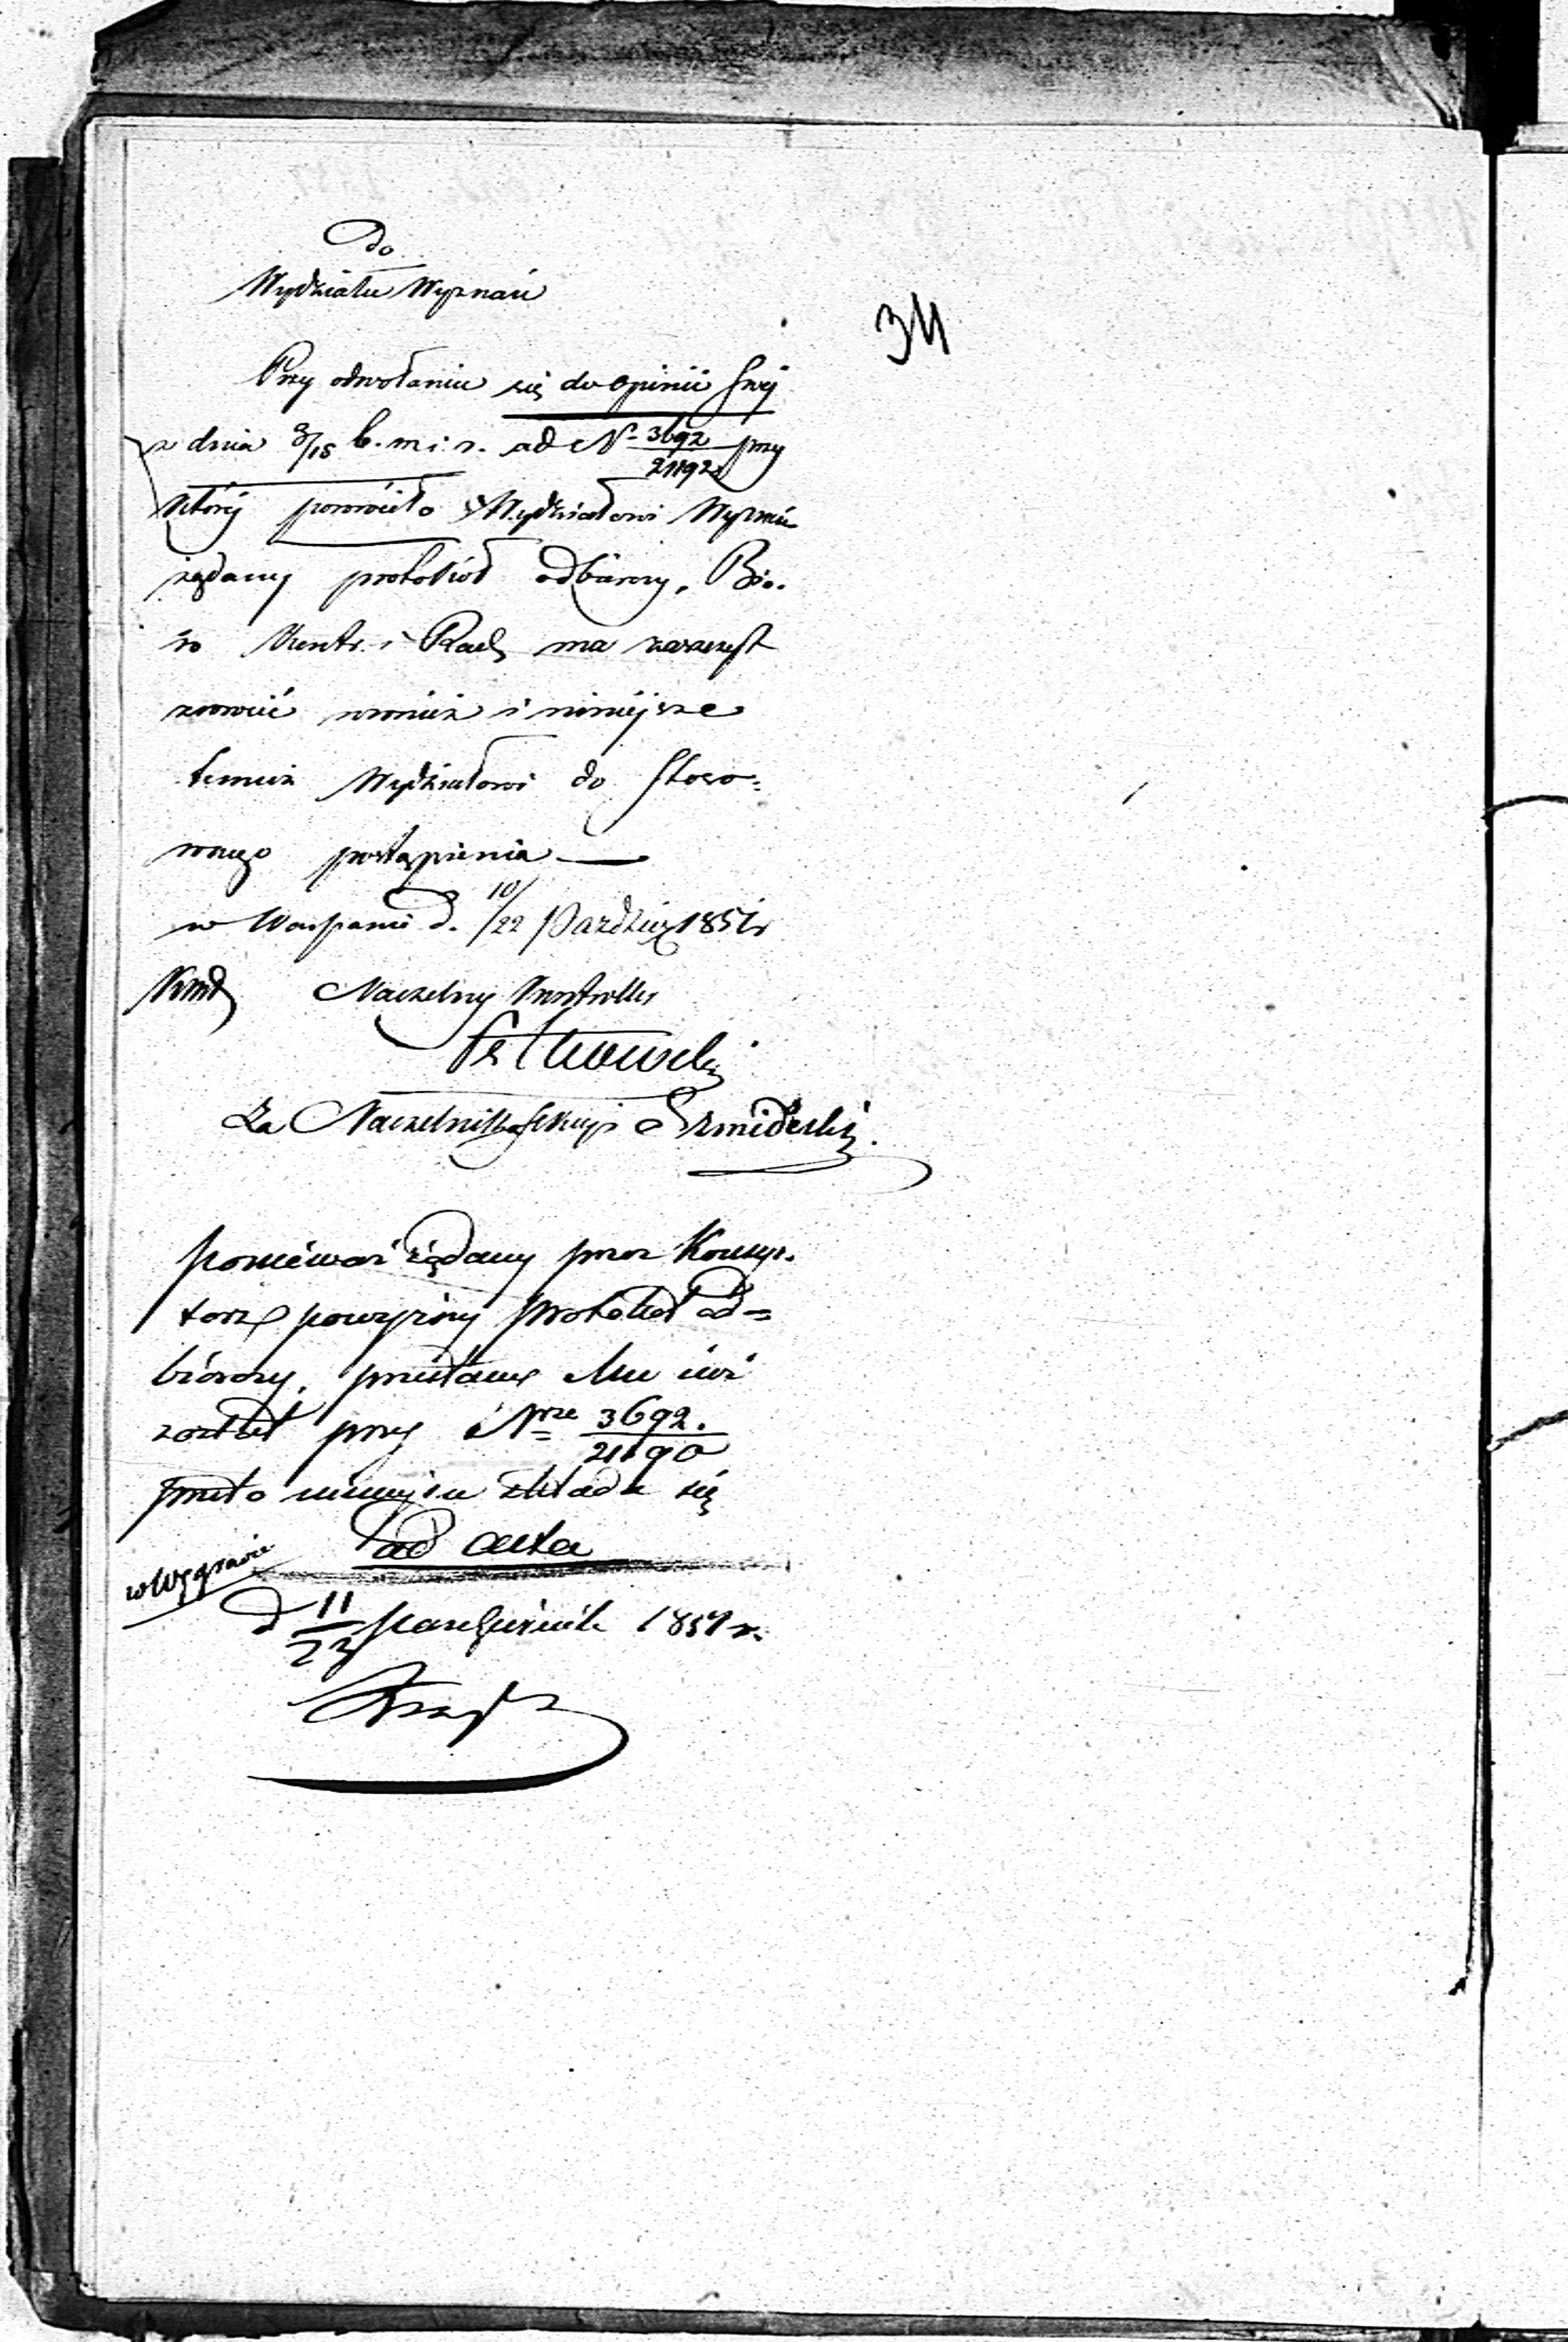 Do
Wydziału Wyznań
34
Przy odwołaniu się do opinii swej
z dnia 3/15 b. m. i r. ad N. 3692/21192 przy
której powróciło Wydziałowi Wyznań
żądany protokół odbiorczy, Bió-
ro Kontr. i Rach ma zaszczyt
zwrócić również i niniejsze
temuż Wydziałowi do stoso-
wnego postąpienia —
w Warszawie d. 10/22 Paździer 1851 r
Naczelny Kontroller
Za Naczelnika Sekcyi
ponieważ żądany przez Konsys-
torz powyższy Protokół od=
biórczy, przesłany Mu już
został przy Nrze 3692./21190
przeto niniejsze składa się
ad acta
d 11/23 Października 1851 r.